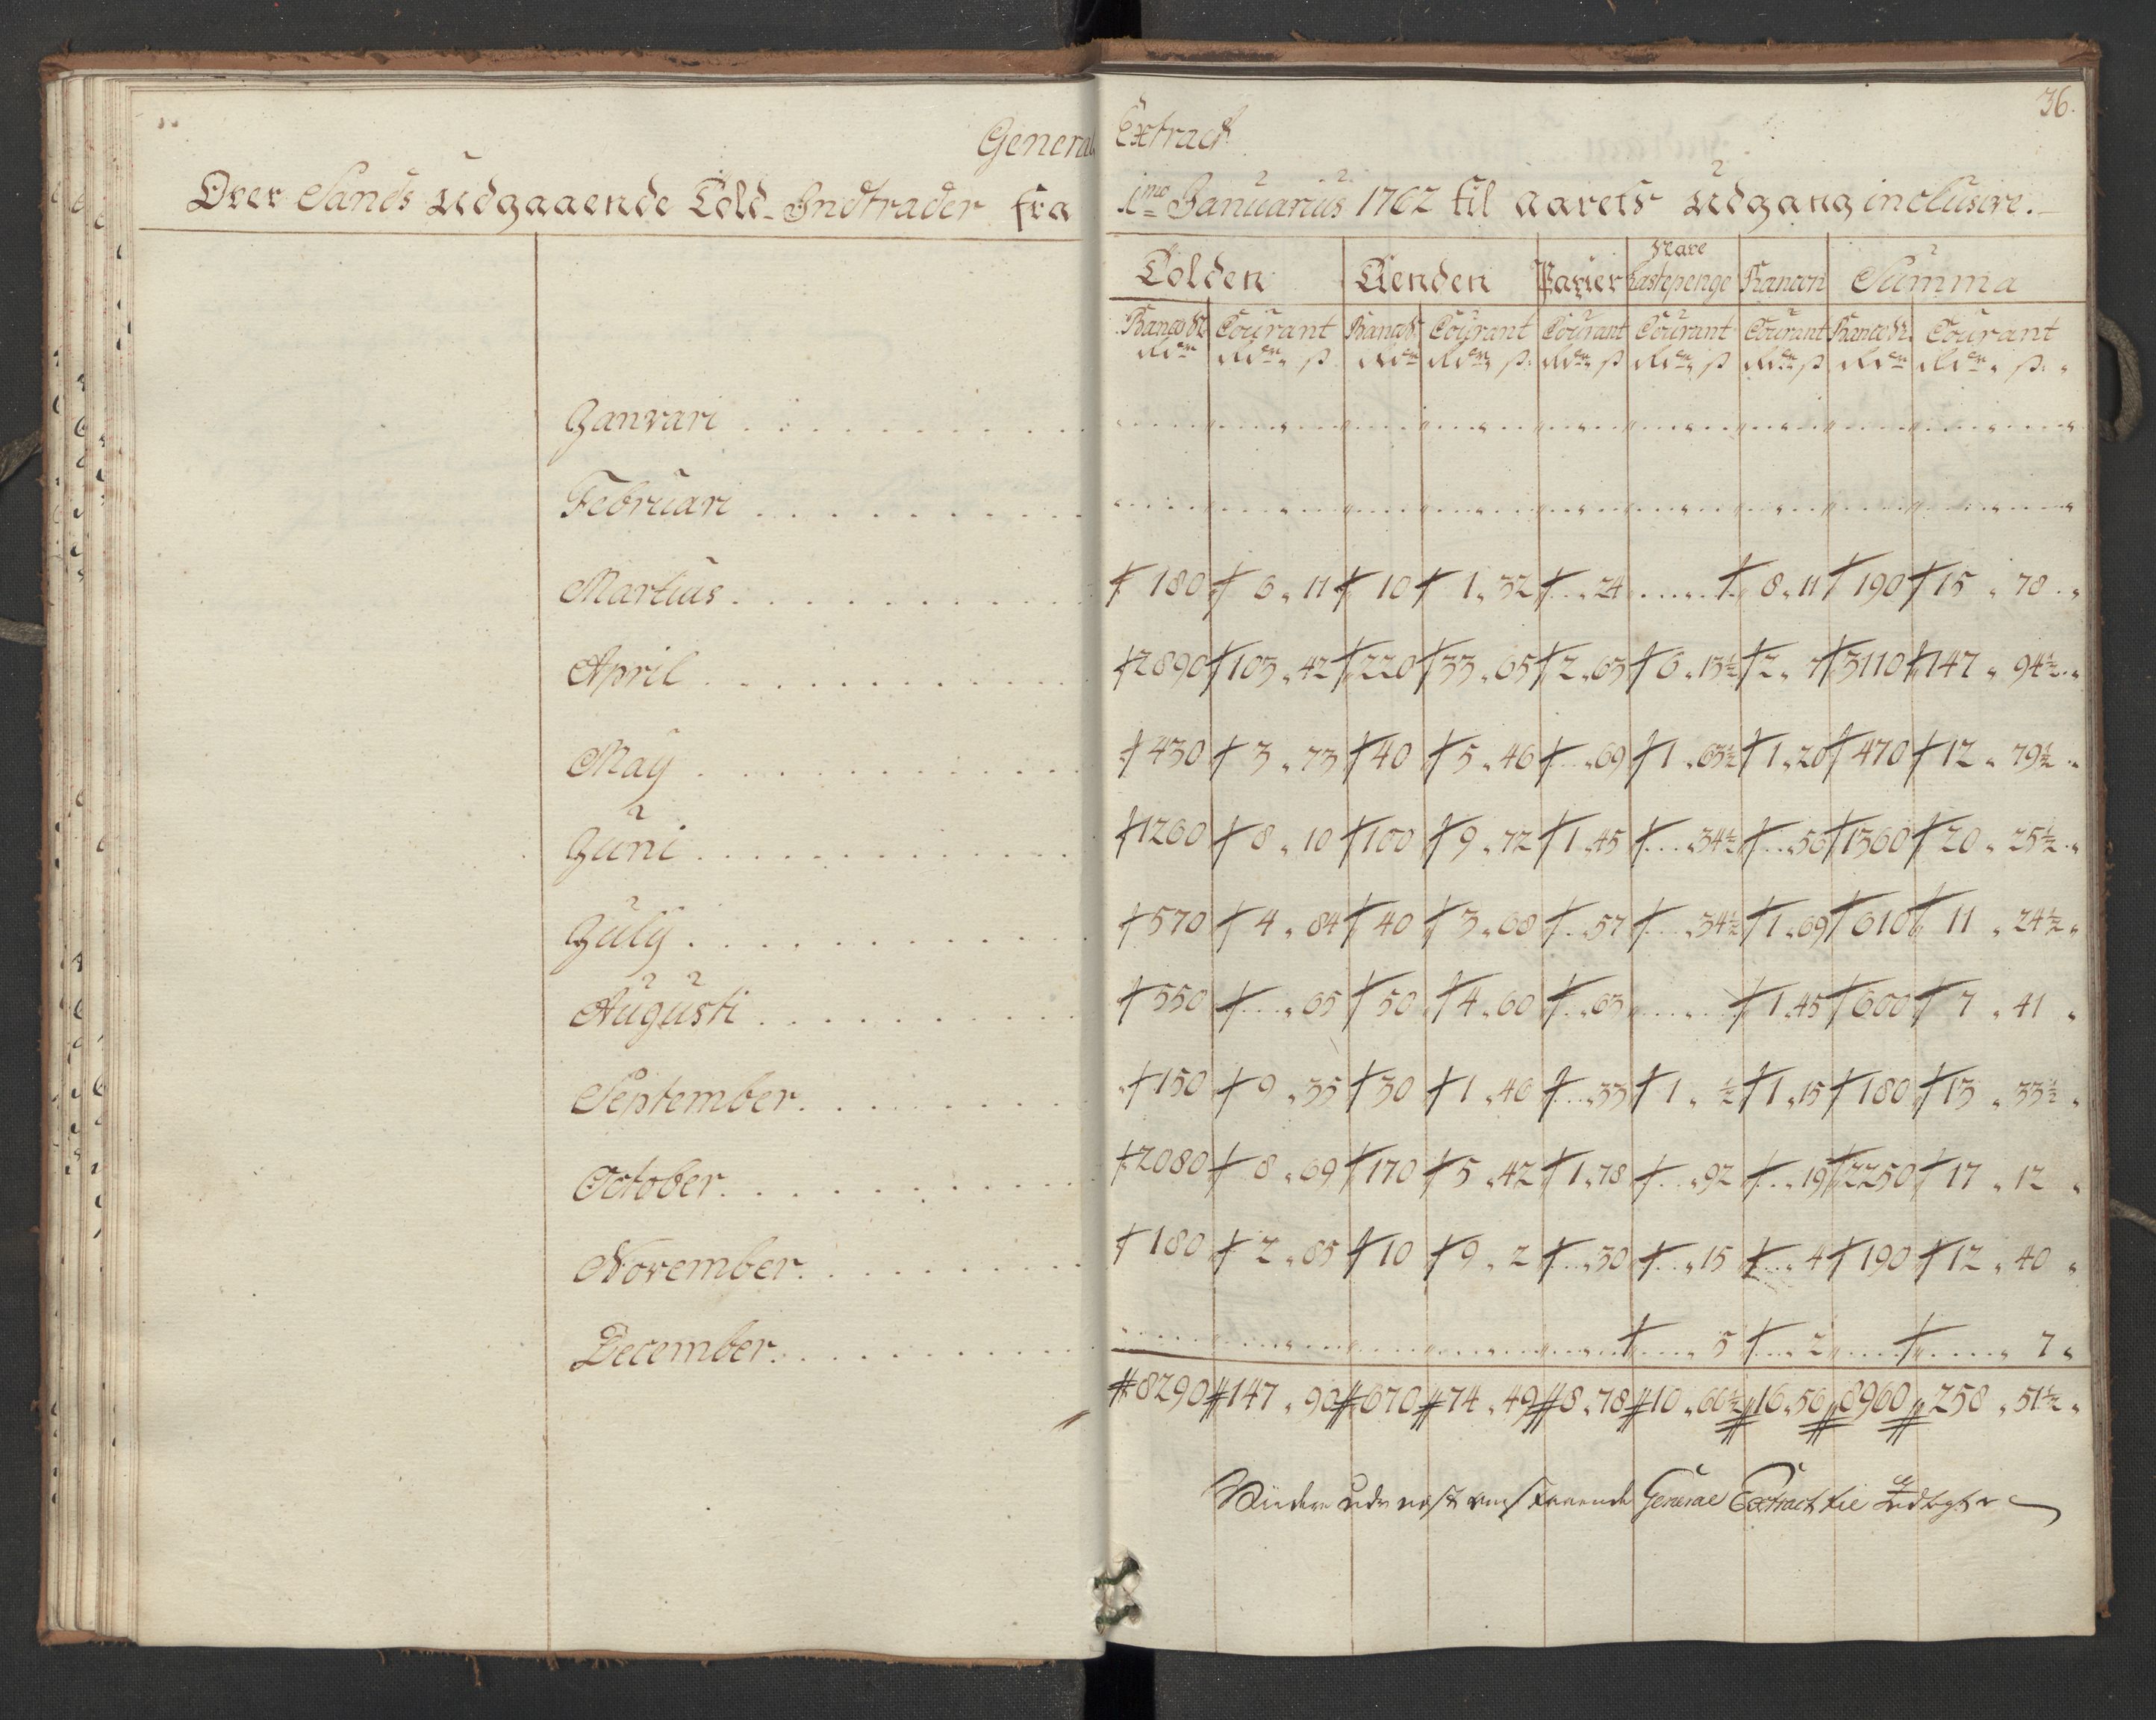 36.
General Extract
Over Sands Udgaaende Told-Indtrader fra 1mo Januarius 1762 til aarets Udgang inclusive.
Tolden Tienden Papier Lastepenge Summa
Courant Courant Courant Courant Courant Courant
Janvari
Februari
Martius 180 6 11 10 1 32 24 8 11 190 15 78
April 2890 103 42 220 33 65 2 63 6 13½ 2 7 3110 147 94½
May 430 3 73 40 5 46 69 1 63½ 1 20 470 12 79½
Juni 1260 8 10 100 9 72 1 45 34½ 56 1360 20 25½
July 570 4 84 40 3 68 57 34½ 1 69 610 11 24½
Augusti 550 65 50 4 60 63 1 45 600 7 41
September 150 9 35 30 1 46 33 1 ½ 1 15 180 13 33½
October 2080 8 69 170 5 42 1 78 92 19 2250 17 12
November 180 2 85 10 9 2 30 15 4 190 12 40
December 5 2 7
8290 147 90 670 74 49 8 78 10 66½ 16 56 8960 258 51½
General Extract